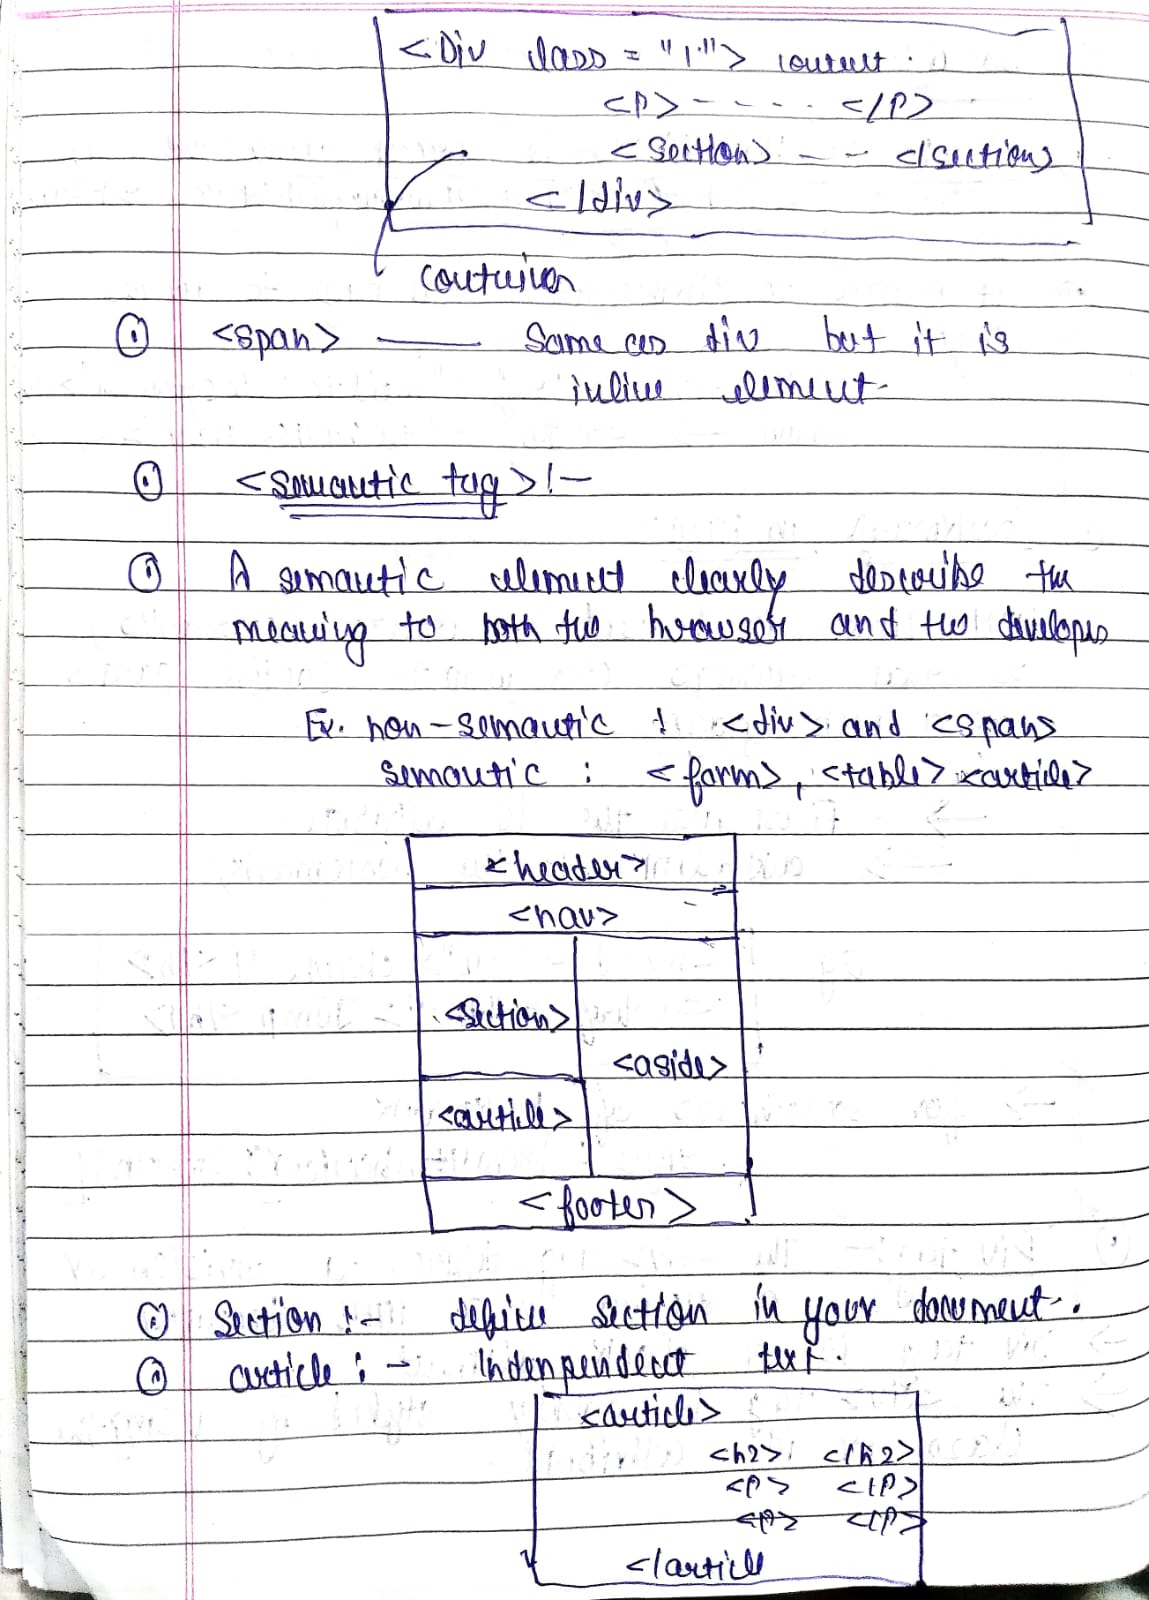 <Div class = "1"> content .
<p> - - - - . </p>
<section> - - </section>
</div>
container
<span> —— Same as div but it is
inline element-
<semantic tag> :-
A semantic element clearly describe the
meaning to both the browser and the developer
Ex. non-semantic : <div> and <span>
semantic : <form>, <table> <article>
<header>
<nav>
<section>
<aside>
<article>
<footer>
Section :- define section in your document.
article : - Indenpendect text.
<article>
<h2> </h2>
<p> </p>
<p> </p>
</article